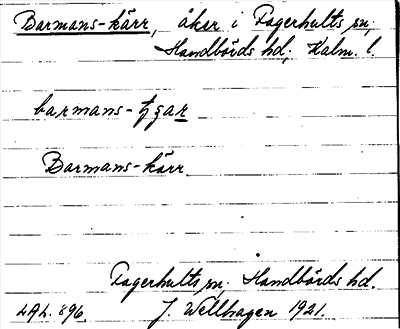 Barmans-kärr, åker i Fagerhults sn,
Handbörds hd, Kalm. l.
barmans-
Barmans-kärr
Fagerhults sn, Handbörds hd.
LAL. 896. J. Wellhagen 1921.